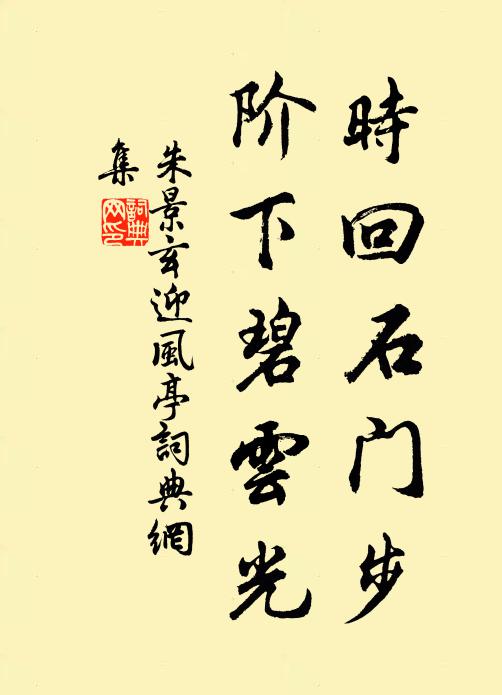 時回石门步
阶下碧雲光
朱景玄迎風亭詞典網
集
詞典
网印